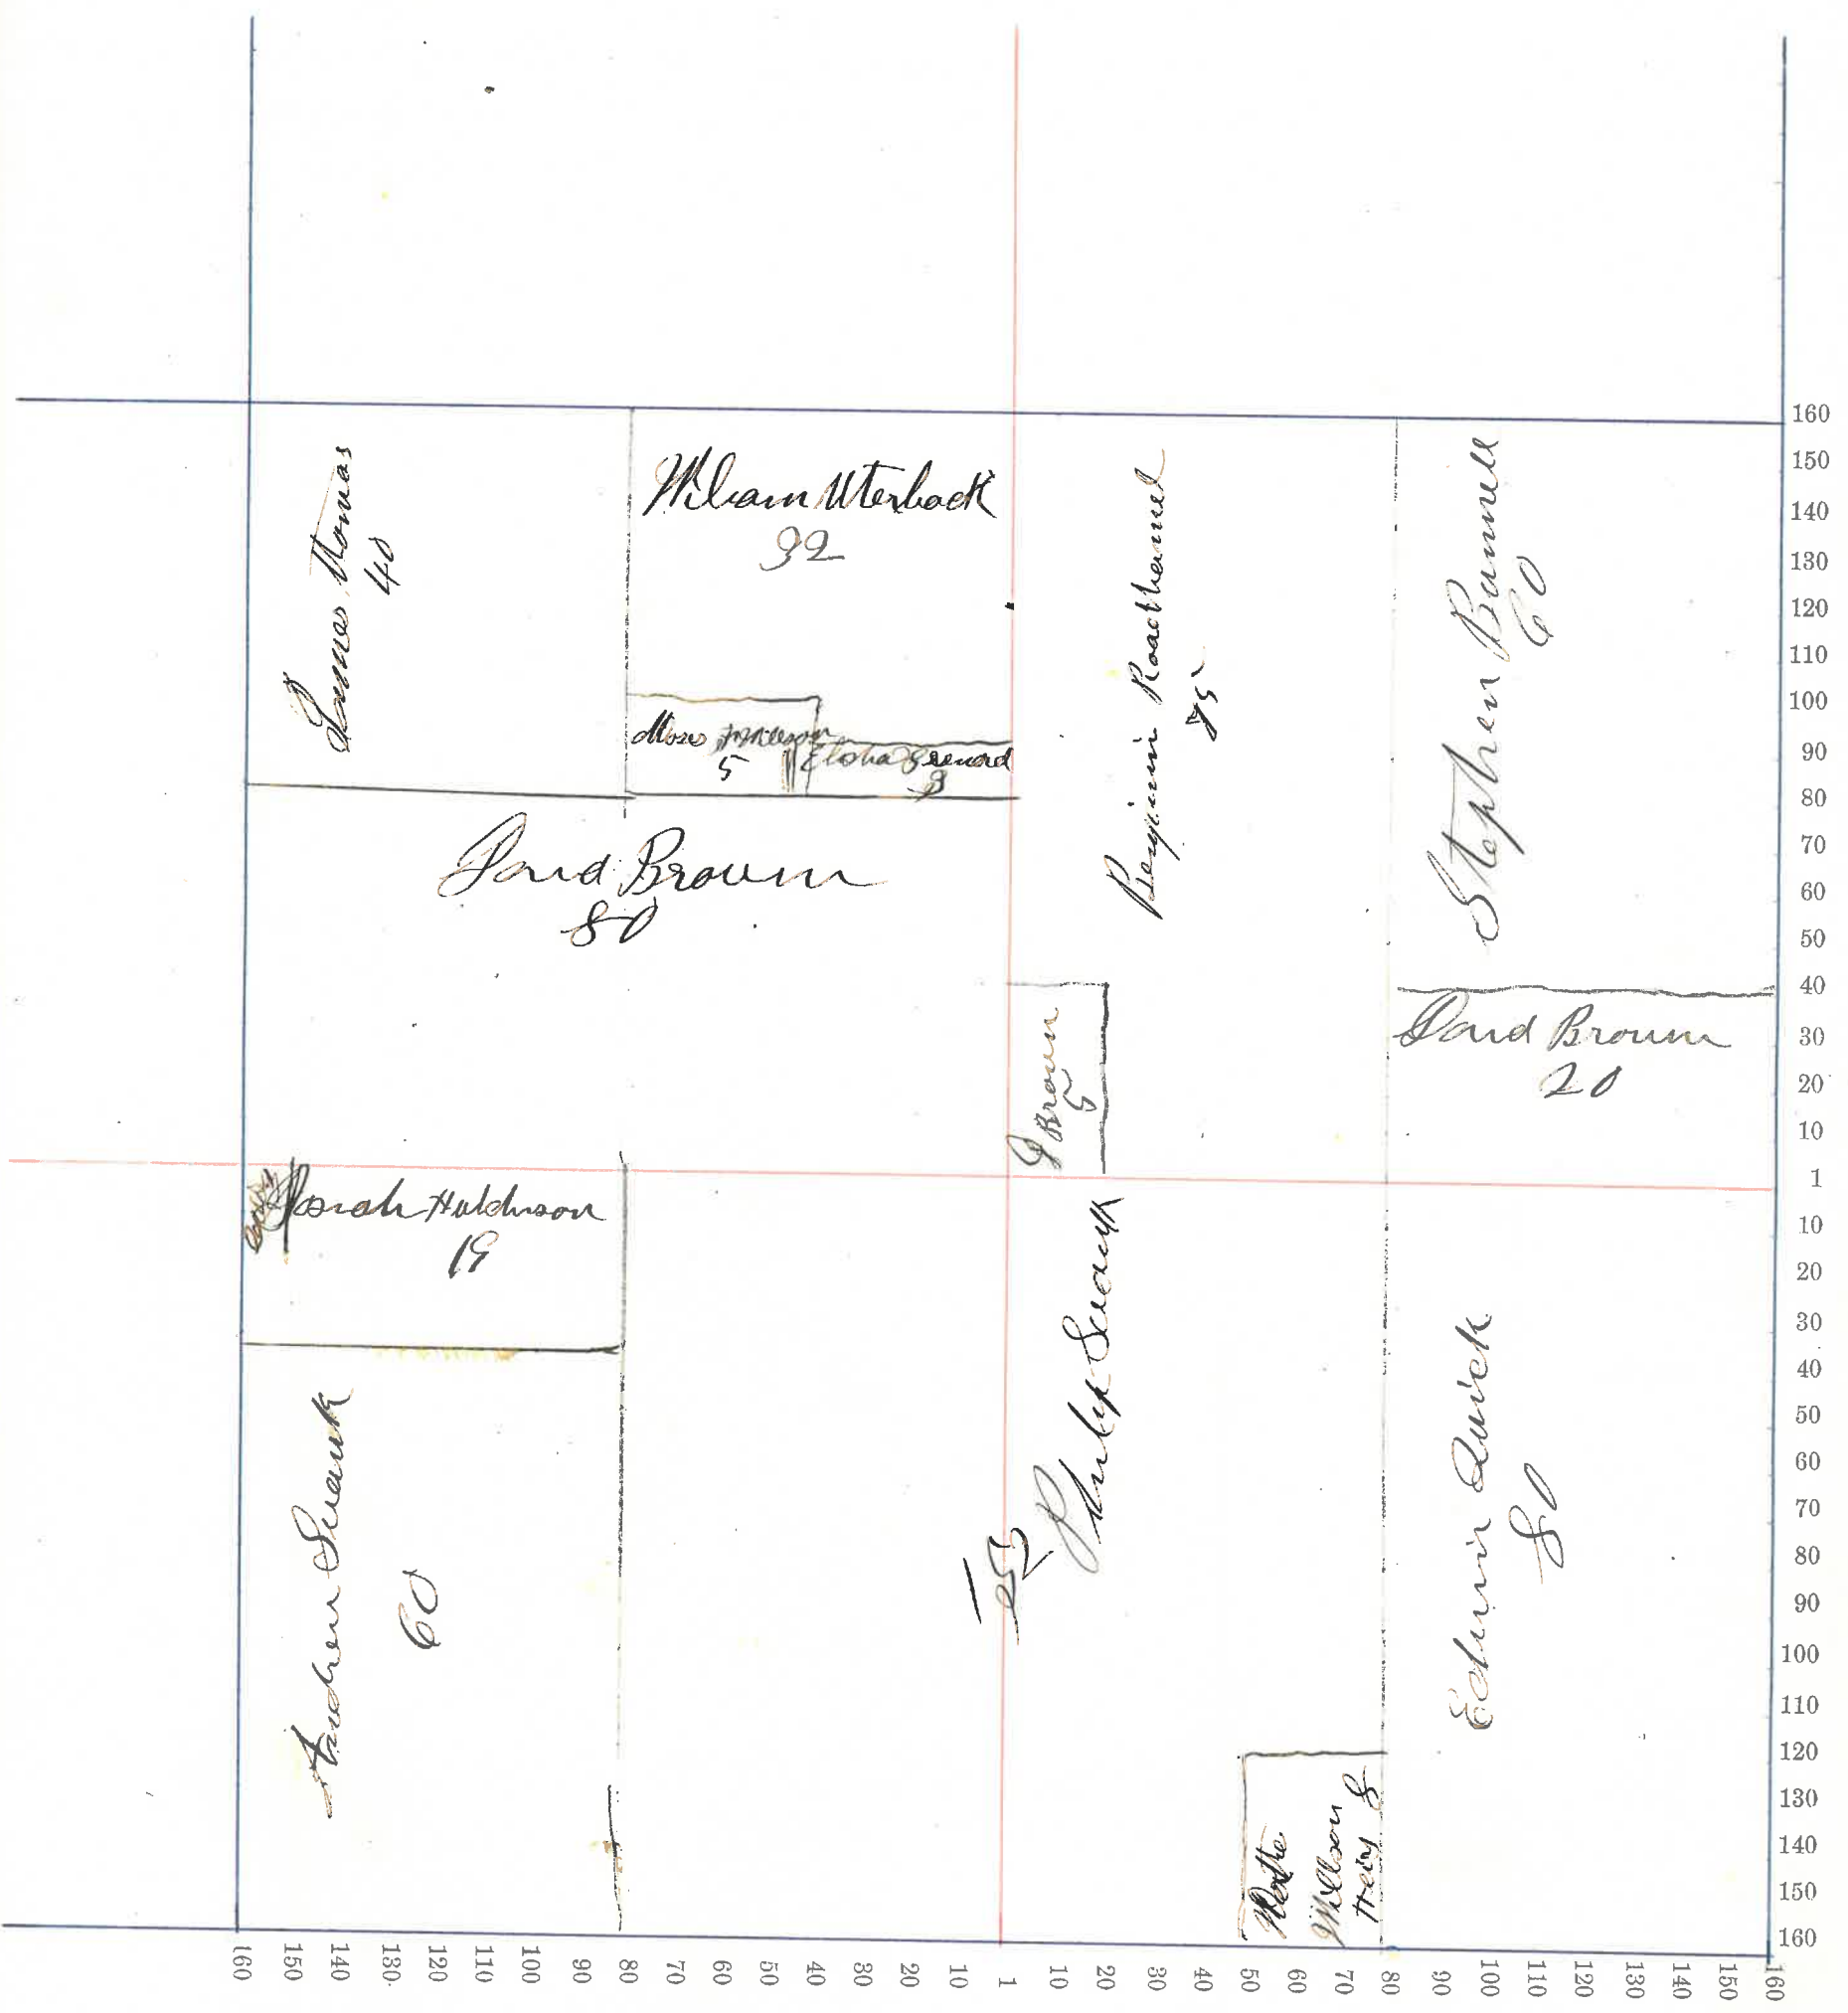 James Thomas
40
Wiliam Uterback
32
Moses
5
Elisha
3
Benjimin Roadhermel
75
Stephen Bunnell
60
David Brown
80
J Brown
5
David Brown
20
Josiah Hutchinson
19
Andrew Swank
60
Philip Swank
Edwin Quick
80
Willson
Heirs 8
160
150
140
130
120
110
100
90
80
70
60
50
40
30
20
10
1
10
20
30
40
50
60
70
80
90
100
110
120
130
140
150
160
160 150 140 130 120 110 100 90 80 70 60 50 40 30 20 10 1 10 20 30 40 50 60 70 80 90 100 110 120 130 140 150 160